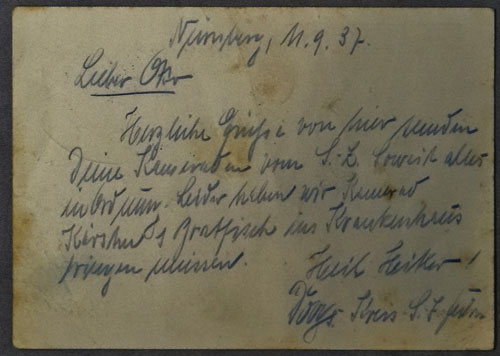 Nürnberg, 11.9.37.
Lieber Otto
Herzliche Grüße von hier senden
Deine Kameraden vom S.Z. Soweit alles
in Ordnung. Leider haben wir Kamerad
Bratfisch ins Krankenhaus
bringen müssen.
Heil Hitler!
S.Z.